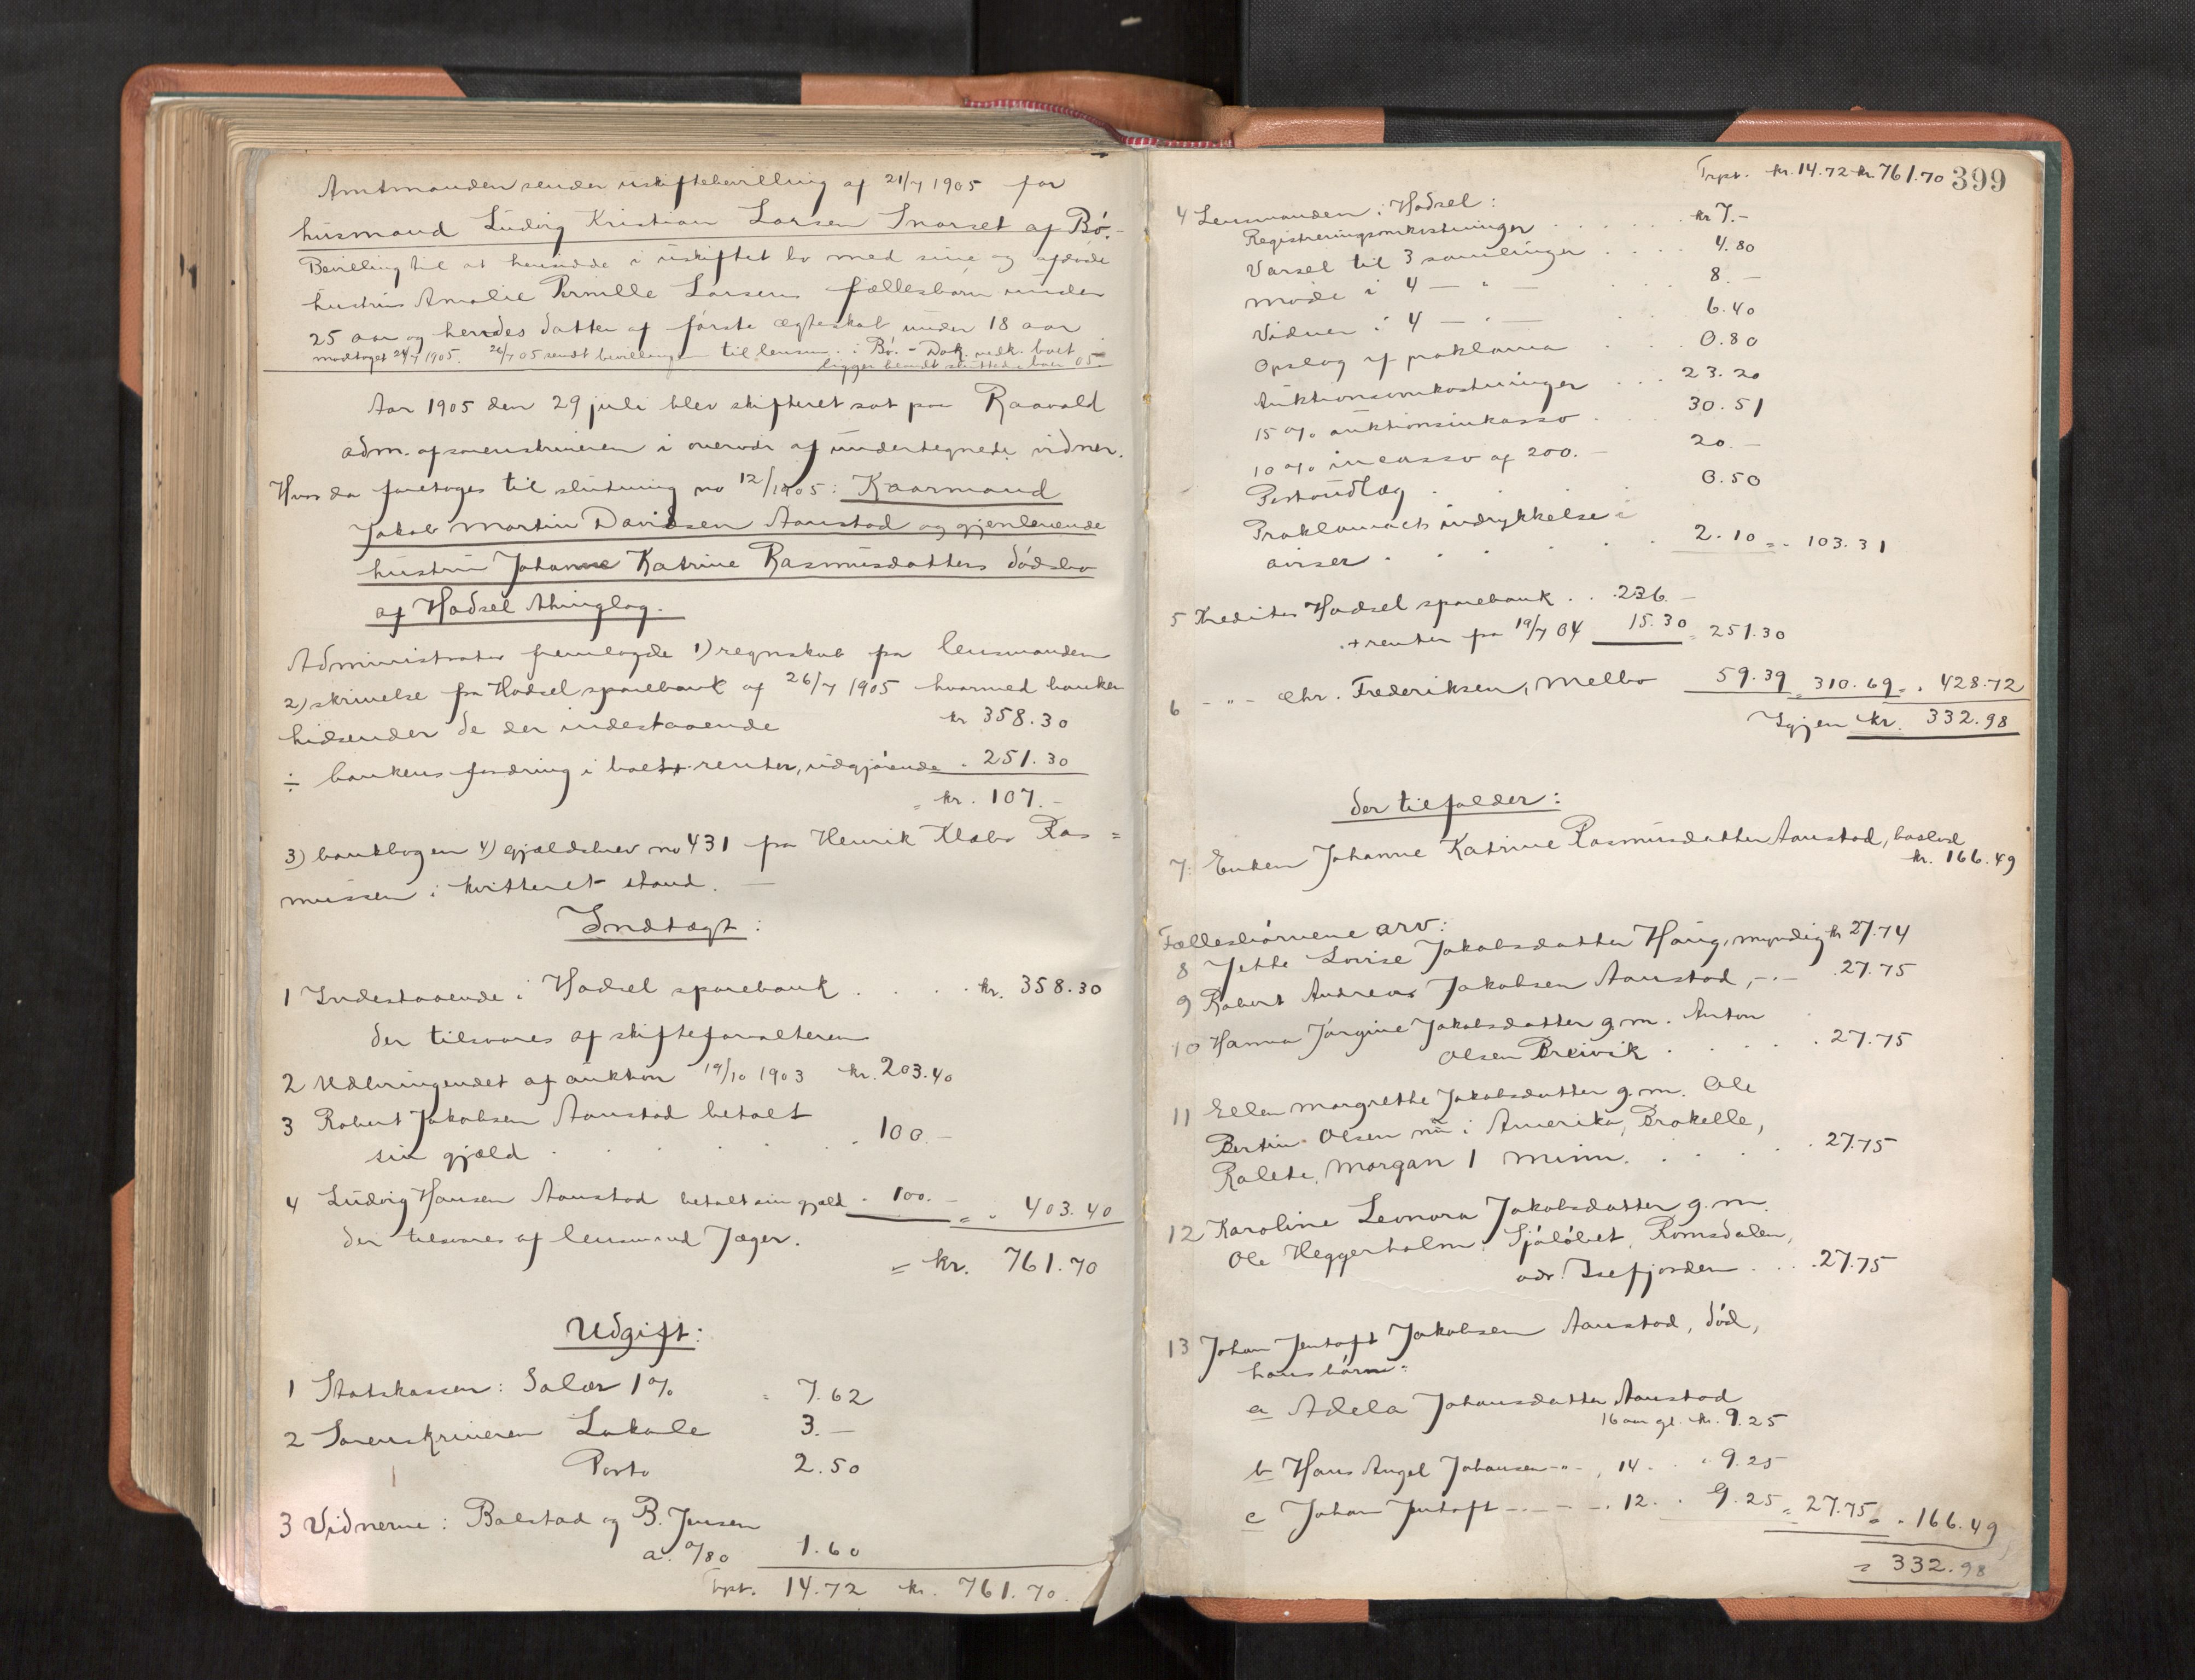 Amtmanden sender uskiftebevilling af 21/7 1905 for
husmand Ludvig Kristian Larsen Snarset af Bø.-
Bevilling til at hensidde i uskiftet bo med sine og afdøde
hustrus Amalie Pernille Larsens fællesbarn under
25 aar og hendes datter af første ægteskab under 18 aar
modtaget 24/7 1905. 26/7 05 sendt bevillingen til lensm. i Bø. - Dok. vedk. boet
ligger blandt sluttede boer 05
Aar 1905 den 29 juli blev skifteret sat paa Raavald
adm. af sorenskriveren i overvær af undertegnede vidner.
Hvor da foretoges til slutning no 12/1905: Kaarmand
Jakob Martin Davidsen Aanstad og gjenlevende
hustru Johanne Katrine Rasmusdatters dødsbo
af Hadsel thinglag.
Administrator fremlagde 1) regnskab fra lensmanden
2) skrivelse fra Hadsel sparebank af 26/7 1905 hvormed banken
hidsender de der indestaaende kr 358.30
÷ bankens fordring i boet + renter, udgjørende . 251.30
= kr. 107.-
3) bankbogen 4) gjældsbrev no 431 fra Henrik Klæbo Ras=
mussen i kvitteret stand. -
Indtægt:
1 Indestaaende i Hadsel sparebank . . . . kr. 358.30
der tilsvares af skifteforvalteren
2 Udbringendet af auktion 19/10 1903 kr. 203.40
3 Robert Jakobsen Aanstad betalt
sin gjæld . . . . . 100.-
4 Ludvig Hansen Aanstad betalt sin gjæld . 100.- = . 403.40
der tilsvares af lensmand Jæger.
= kr. 761.70
Udgift:
1 Statskassen: Salær 1% = 7.62
2 Sorenskriveren Lokale 3.-
Porto 2.50
3 Vidnerne: Balstad og B. Jensen
a. 0/80 1.60
Trpt. 14.72 kr. 761.70.
Trpt. kr. 14.72 kr 761.70 399
4 Lensmanden i Hadsel:
Registreringsomkostninger . . . . . kr 7.-
Varsel til 3 samlinger . . . . 4.80
Møde i 4 - " - . . . 8.-
Vidner i 4 - " - . . 6.40
Opslag af proklama . . . 0.80
Auktionsomkostninger . . . 23.20
15% auktionsinkasso . . . 30.51
10% incasso af 200.- 20.-
Portoudlæg . . . . 0.50
Proklamaets indrykkelse i
aviser . . . . . 2.10 = . 103.31
5 Kreditor Hadsel sparebank . . . 236.-
+ renter fra 19/7 04 15.30 = 251.30
6 - " - Chr. Frederiksen, Melbo 59.39 = 310.69 = . 428.72
Igjen kr. 332.98
der tilfalder:
7. Enken Johanne Katrine Rasmusdatter Aanstad, boslod
kr. 166.49
Fællesbørnene arv:
8 Jette Lovise Jakobsdatter Haug, myndig kr 27.74
9 Robert Andreas Jakobsen Aanstad, - " - . 27.75
10 Hanna Jørgine Jakobsdatter g.m. Anton
Olsen Breivik . . . . . 27.75
11 Ellen Margrethe Jakobsdatter g.m. Ole
Bertin Olsen nu i Amerika, Brakelle,
Ralete, Morgan 1 Minn. . . . . . 27.75
12 Karoline Leonora Jakobsdatter g.m.
Ole Heggerholm, Sjøløbet, Romsdalen,
adr. Isefjorden . . . 27.75
13 Johan Jentoft Jakobsen Aanstad, død,
hans børn:
a Adela Johansdatter Aanstad
16 aar gl. kr. 9.25
b Hans Angel Johansen - " - , 14 . . . 9.25
c Johan Jentoft - . - - . 12. . 9.25 = 27.75 = . 166.49
= 332.98